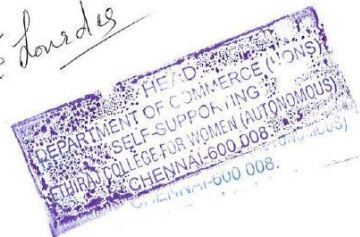 Lourdes
HEAD
DEPARTMENT OF COMMERCE (HONS)
SELF-SUPPORTING
ETHIRAJ COLLEGE FOR WOMEN (AUTONOMOUS)
CHENNAI-600 008.
CHENNAI-600 008.